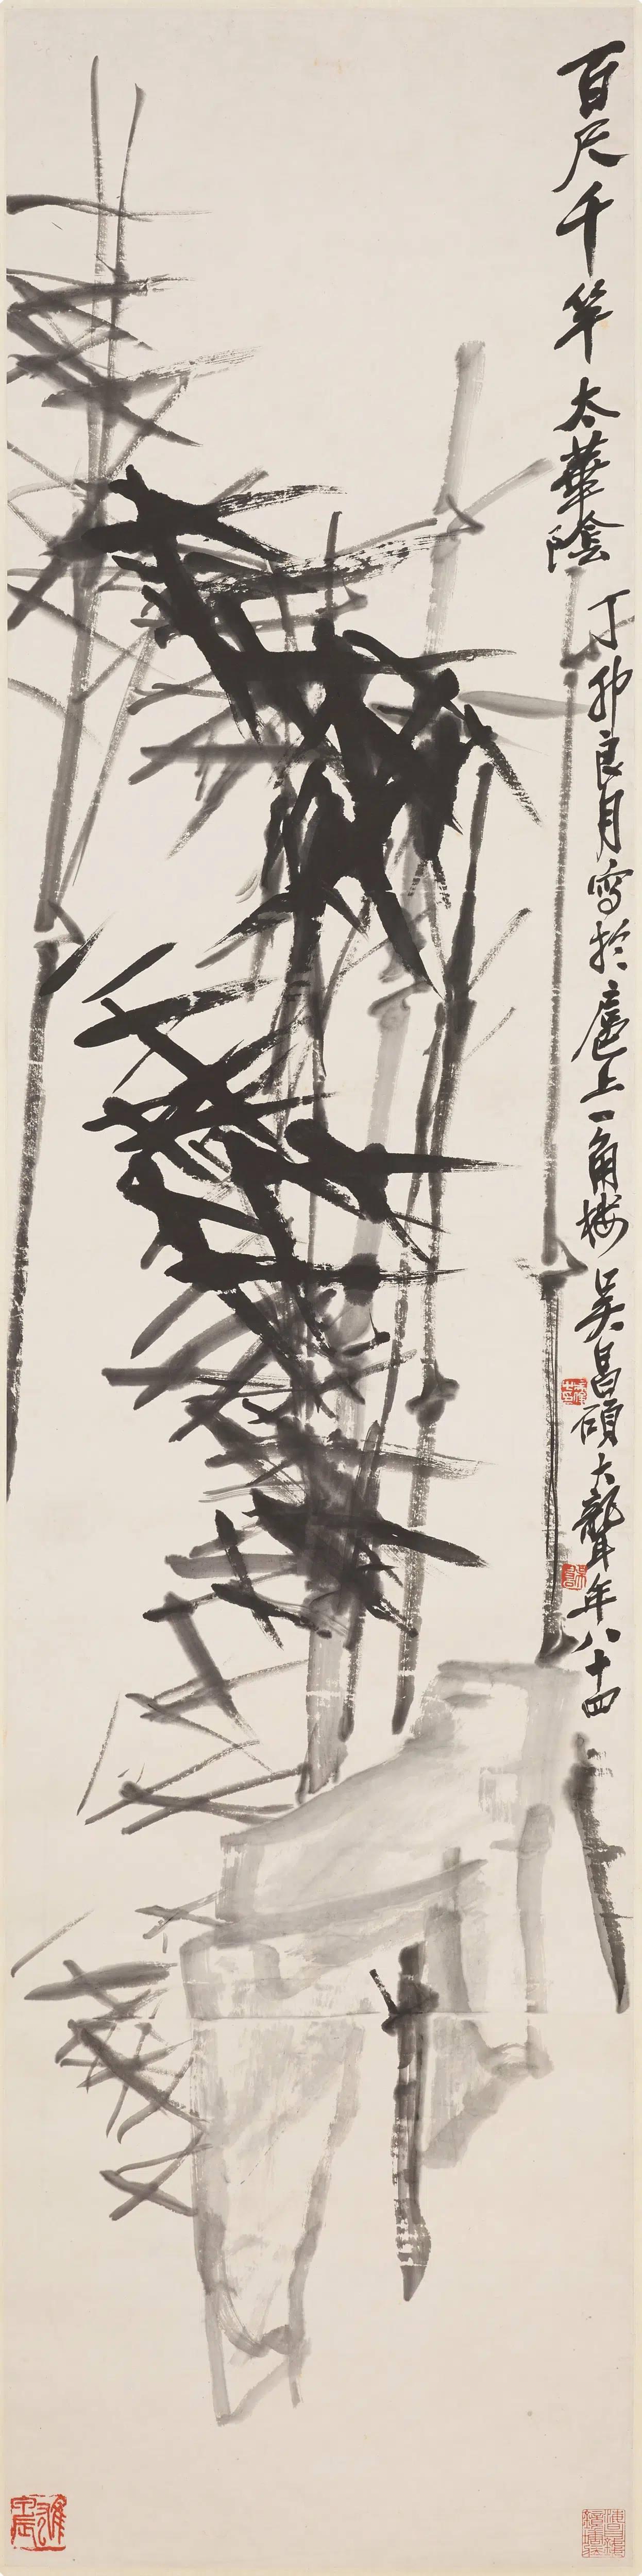 百尺千竿太華陰
丁卯良月寫於滬上一角樓吳昌碩大聾年八十四